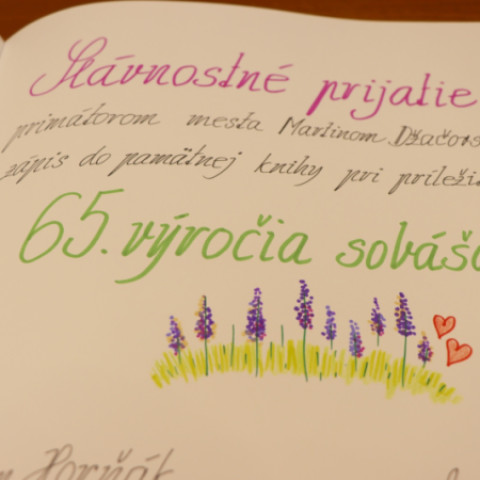 Slávnostné prijatie
primátorom mesta Martinom
zápis do pamätnej knihy pri
65. výročia
Horňák